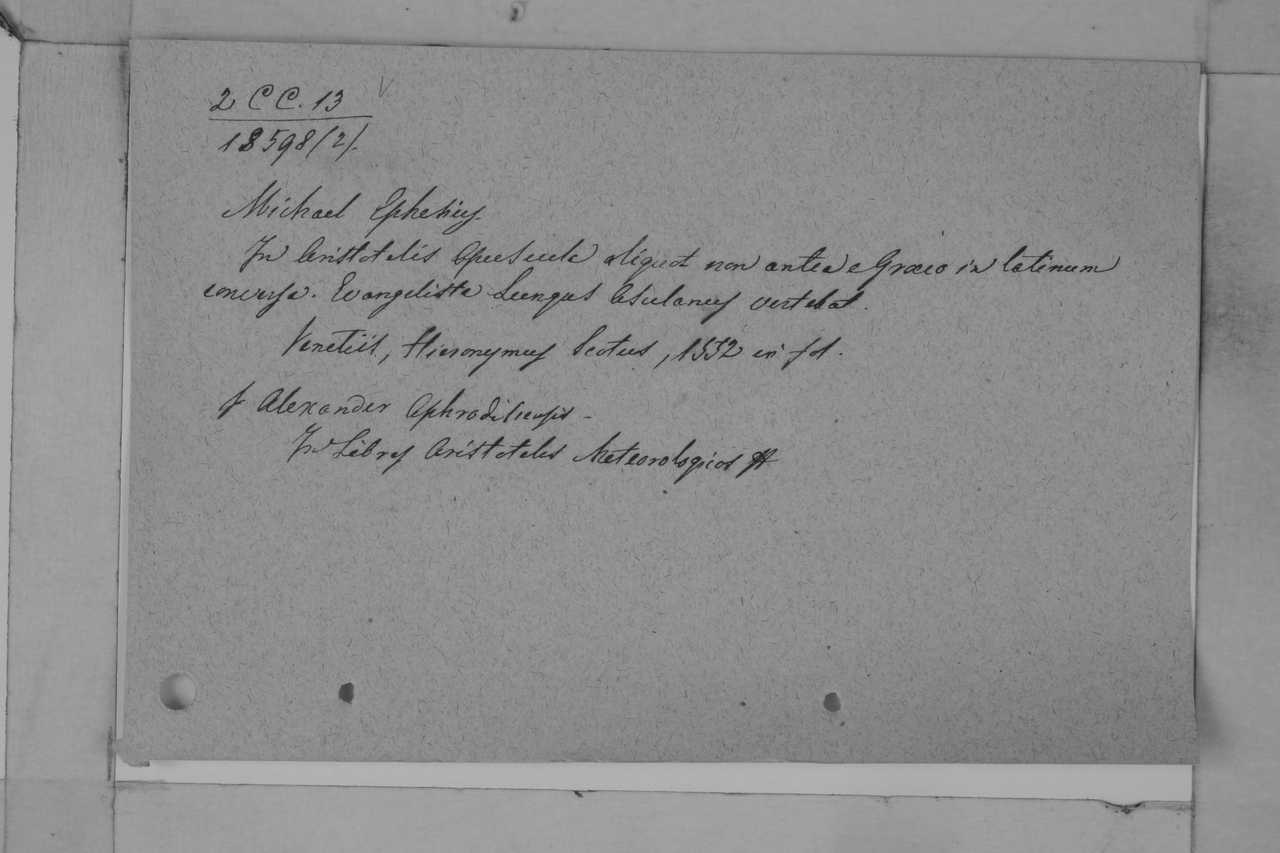 2 CC. 13
18598(2).
Michael Ephesius.
In Aristotelis Opuscula aliquot non antea e Graeco in latinum
conversa. Evangelista Lungus Asulanus vertebat.
Venetiis, Hieronymus Scotus, 1552 in fol.
f Alexander Aphrodisiensis
In Libros Aristotelis Meteorologicos